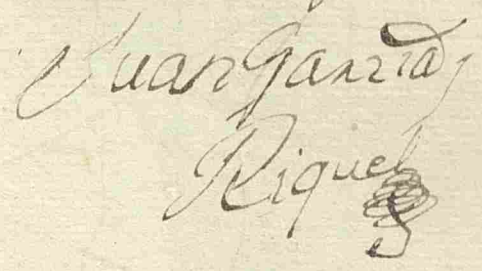 Juan Garzia
Riquel